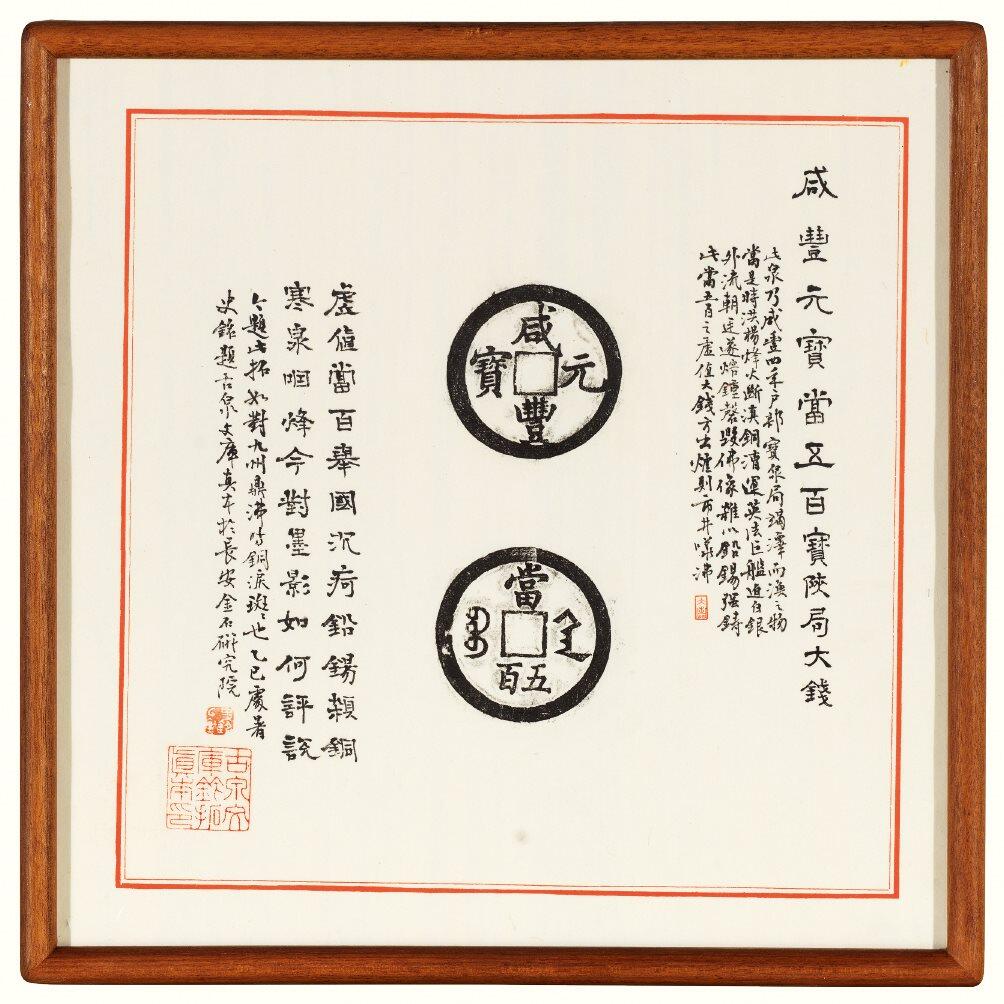 咸豐元寶當五百寶陝局大錢
此泉乃咸豐四年戶部寶泉局竭澤而漁之物
當是時洪楊烽火斷滇銅漕運英法巨艦迫白銀
外流朝廷遂熔鐘磬毀佛像雜以鉛錫强鑄
此當五百之虛值大錢方出爐則市井嘩沸
咸豐元寶
當五百
虛值當百舉國沉疴鉛錫賴銅
寒泉咽烽今對墨影如何評說
今題此拓如對九州鼎沸時銅淚斑斑也乙巳處暑
史錄題古泉文庫真本於長安金石研究院
古泉文
庫鈐拓
真本印